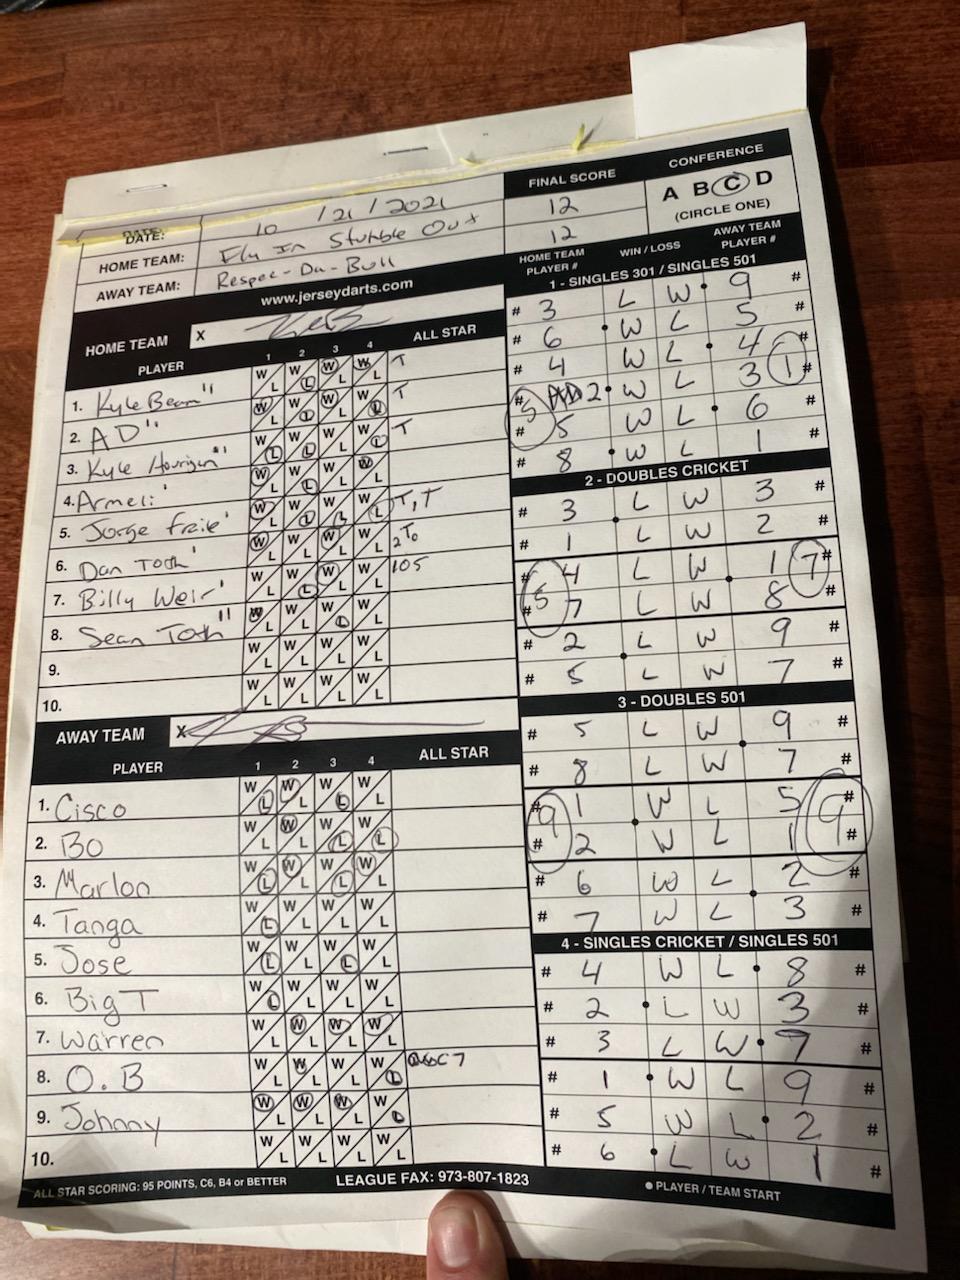 DATE: 10 / 21 / 2021
HOME TEAM: Fly In Stumble Out
AWAY TEAM: Respec-Da-Bull
FINAL SCORE
12
12
CONFERENCE
A B C D
(CIRCLE ONE)
www.jerseydarts.com
HOME TEAM X
PLAYER 1 2 3 4 ALL STAR
1. Kyle Beam" W L W L W L W L T
2. AD" W L W L W L W L T
3. Kyle Hourigan" W L W L W L W L T
4. Armeli' W L W L W L W L
5. Jorge Freile' W L W L W L W L T, T
6. Dan Toth' W L W L W L W L
7. Billy Weir' W L W L W L W L 105
8. Sean Toth" W L W L W L W L
9. W L W L W L W L
10. W L W L W L W L
AWAY TEAM X
PLAYER 1 2 3 4 ALL STAR
1. Cisco W L W L W L W L
2. Bo W L W L W L W L
3. Marlon W L W L W L W L
4. Tanga W L W L W L W L
5. Jose W L W L W L W L
6. Big T W L W L W L W L
7. Warren W L W L W L W L
8. O.B W L W L W L W L C7
9. Johnny W L W L W L W L
10. W L W L W L W L
ALL STAR SCORING: 95 POINTS, C6, B4 or BETTER
LEAGUE FAX: 973-807-1823
HOME TEAM PLAYER # WIN / LOSS AWAY TEAM PLAYER #
1 - SINGLES 301 / SINGLES 501
# 3 L W 9 #
# 6 W L 5 #
# 4 W L 4 #
# 2 W L 3 # 1
# 5 W L 6 # 5
# 8 W L 1 #
2 - DOUBLES CRICKET
# 3 L W 3 #
# 1 L W 2 #
# 4 L W 1 # 7
# 7 L W 8 # 5
# 2 L W 9 #
# 5 L W 7 #
3 - DOUBLES 501
# 5 L W 9 #
# 8 L W 7 #
# 1 W L 5 # 9
# 2 W L 1 # 9
# 6 W L 2 #
# 7 W L 3 #
4 - SINGLES CRICKET / SINGLES 501
# 4 W L 8 #
# 2 L W 3 #
# 3 L W 7 #
# 1 W L 9 #
# 5 W L 2 #
# 6 L W 1 #
● PLAYER / TEAM START